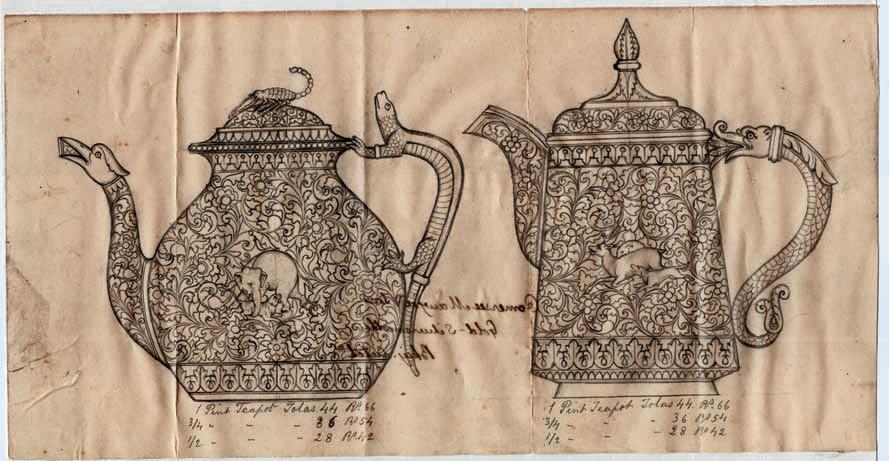 1 Pint Teapot Tolas. 44 Rs. 66
3/4 - - - 36 Rs 54
1/2 - - - 28 Rs 42
Oomersee Mawjee
Gold & Silversmith
Bhuj
1 Pint Teapot Tolas 44. Rs. 66
3/4 - - - 36 Rs 54
1/2 - - - 28 Rs 42